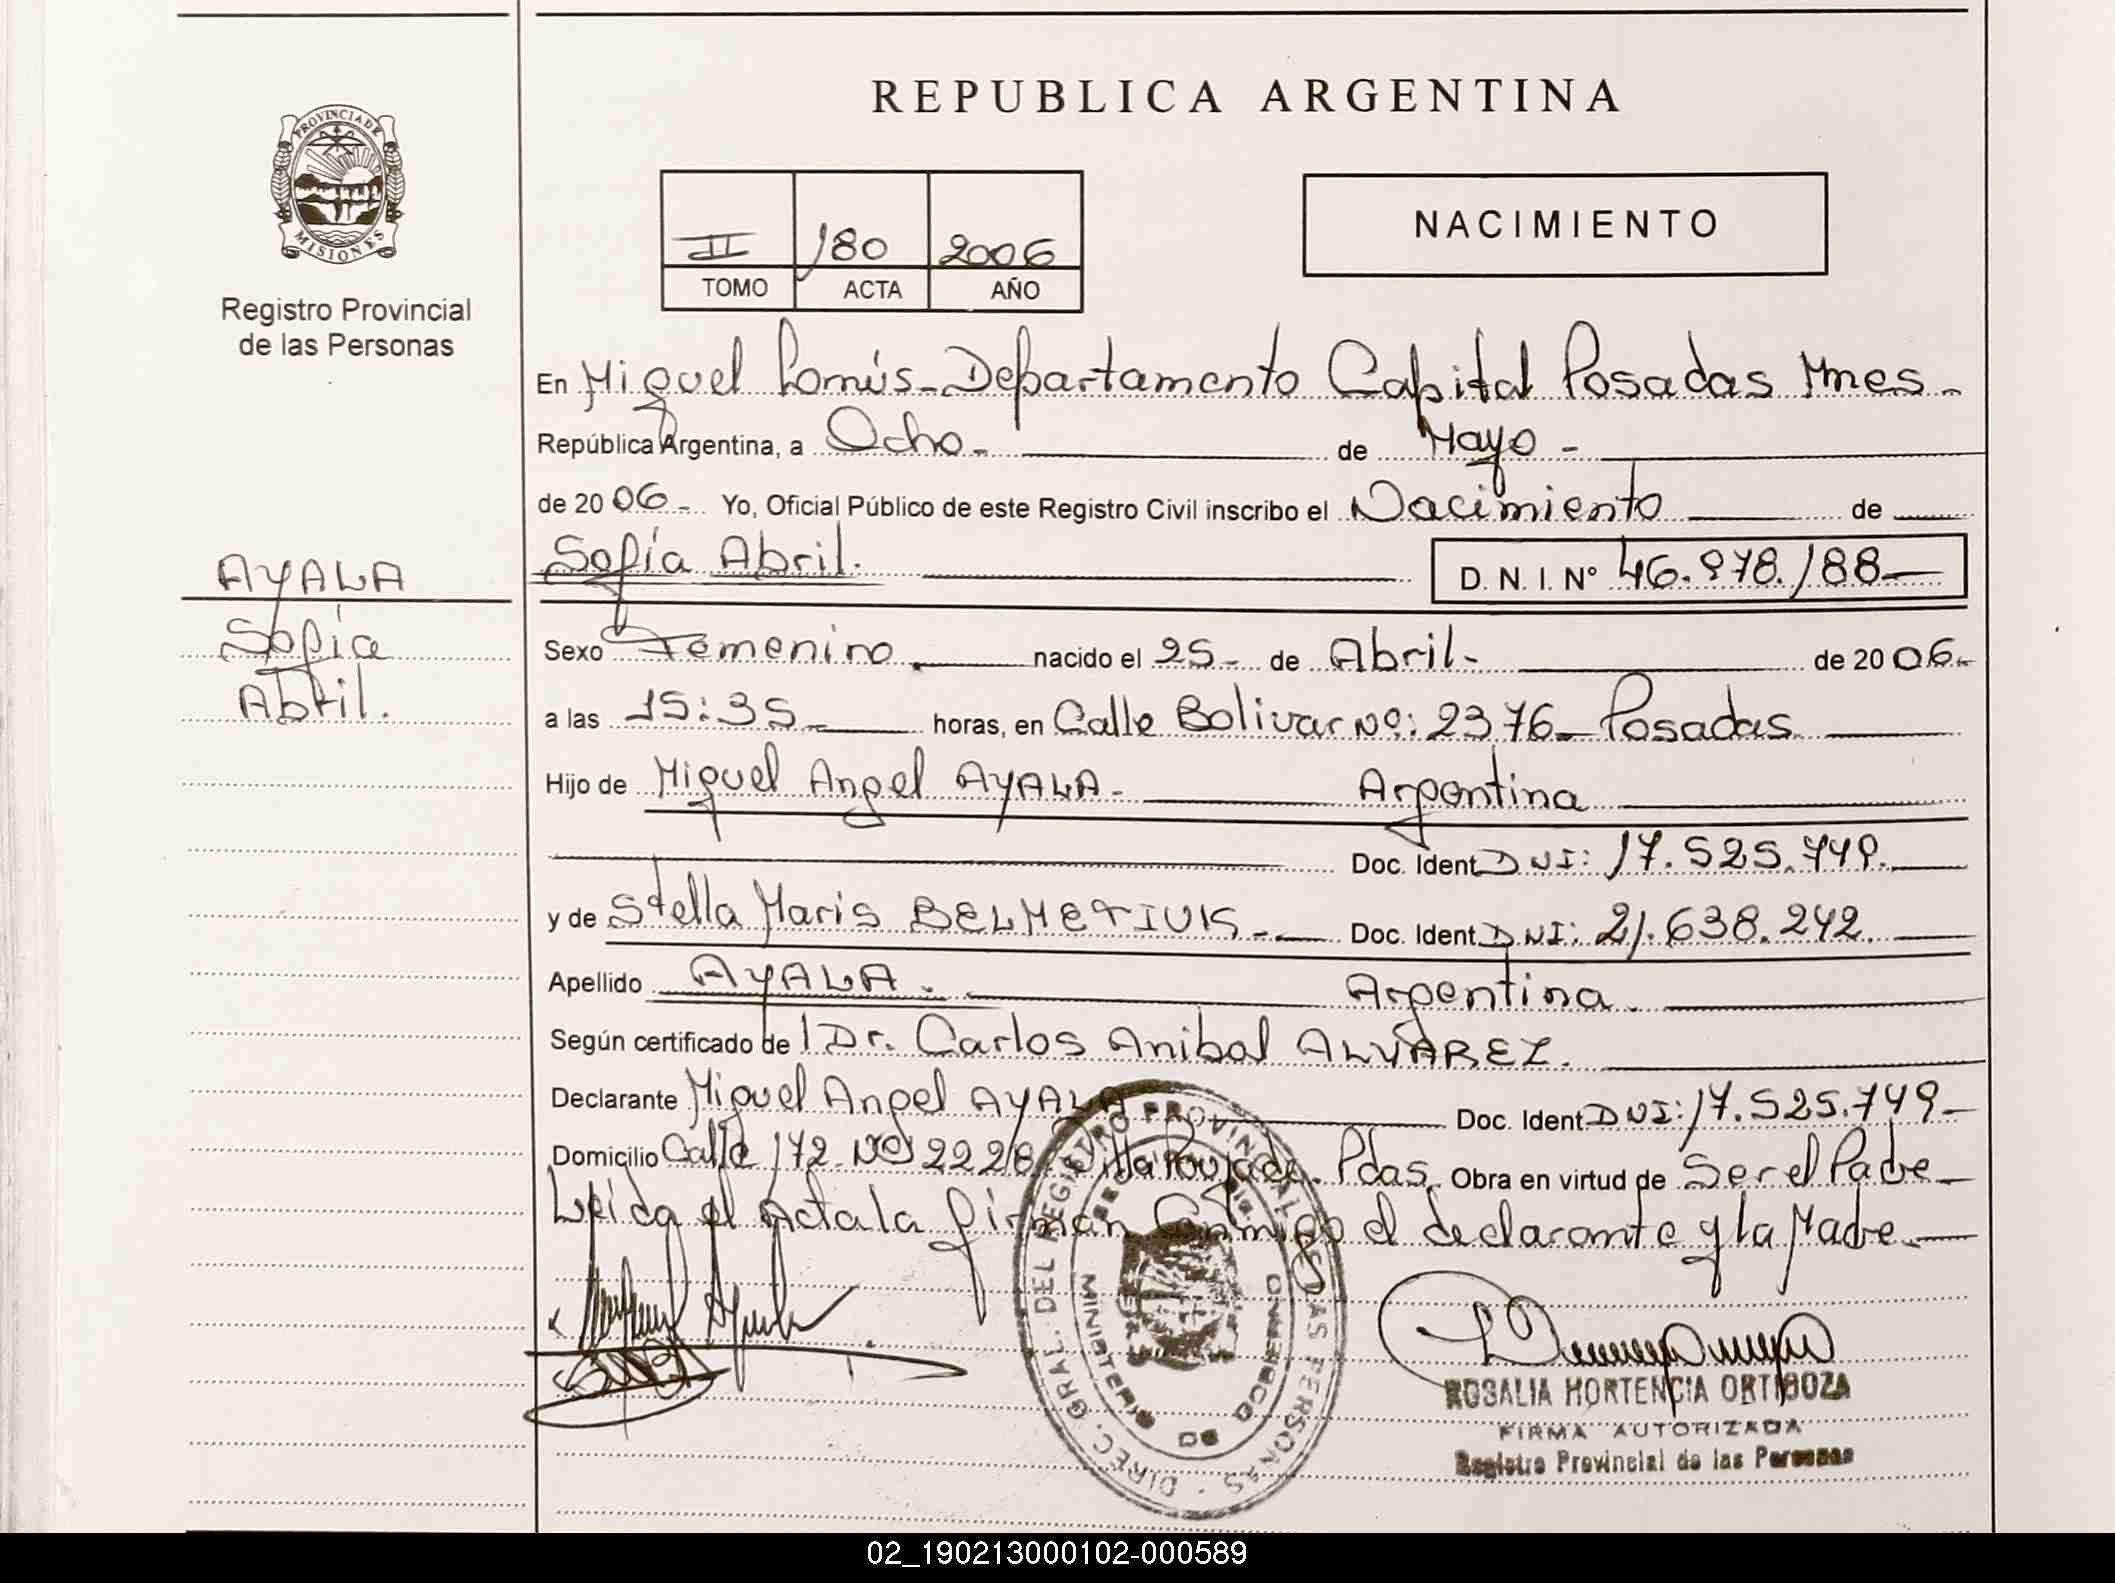 REPUBLICA ARGENTINA
PROVINCIA DE
MISIONES
Registro Provincial
de las Personas
II 180 2006
TOMO ACTA AÑO
NACIMIENTO
En Miguel Lanús - Departamento Capital Posadas Mnes -
República Argentina, a Ocho - de Mayo -
de 2006 - Yo, Oficial Público de este Registro Civil inscribo el Nacimiento de
Sofía Abril. D. N. I. Nº 46.878.188
AYALA
Sofía
Abril.
Sexo Femenino. nacido el 25 - de Abril - de 2006 -
a las 15:35 horas, en Calle Bolivar Nº: 2376 - Posadas
Hijo de Miguel Angel AYALA - Argentina
Doc. Ident DNI: 17.525.749.
y de Stella Maris Doc. Ident DNI: 21.638.242.
Apellido AYALA. Argentina.
Según certificado de l Dr. Carlos Anibal ALVAREZ.
Declarante Miguel Angel AYALA Doc. Ident DNI: 17.525.749 -
Domicilio Calle 172 Nº 2228 Villa Poujade. Pdas. Obra en virtud de Ser el Padre -
Leida el Acta la firman Conmigo el declarante y la Madre. -
DIREC. GRAL. DEL REGISTRO PROVINCIAL DE LAS PERSONAS
MINISTERIO DE GOBIERNO
ROSALIA HORTENCIA ORTIGOZA
FIRMA AUTORIZADA
Registro Provincial de las Personas
02_190213000102-000589